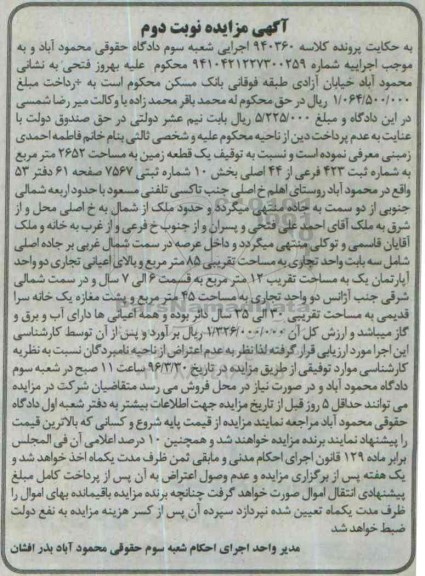 آگهی مزایده نوبت دوم
به حکایت پرونده کلاسه ۹۴۰۳۶۰ اجرایی شعبه سوم دادگاه حقوقی محمود آباد و به
موجب اجراییه شماره ۹۴۱۰۴۲۱۲۲۷۳۰۰۲۵۹ محکوم علیه بهروز فتحی به نشانی
محمود آباد خیابان آزادی طبقه فوقانی بانک مسکن محکوم است به +رداخت مبلغ
۱/۰۶۴/۵۰۰/۰۰۰ ریال در حق محکوم له محمد باقر محمد زاده با وکالت میر رضا شمسی
در این دادگاه و مبلغ ۵/۲۲۵/۰۰۰ ریال بابت نیم عشر دولتی در حق صندوق دولت با
عنایت به عدم پرداخت دین از ناحیه محکوم علیه و شخصی ثالثی بنام خانم فاطمه احمدی
زمینی معرفی نموده است و نسبت به توقیف یک قطعه زمین به مساحت ۲۶۵۲ متر مربع
به شماره ثبت ۴۲۳ فرعی از ۴۴ اصلی بخش ۱۰ شماره ثبتی ۷۵۶۷ صفحه ۶۱ دفتر ۵۳
واقع در محمود آباد روستای اهلم خ اصلی جنب تاکسی تلفنی مسعود با حدود اربعه شمالی
جنوبی از دو سمت به جاده منتهی میگردد و حدود ملک از شمال به خ اصلی محل و از
شرق به ملک آقای احمد علی فتحی و پسران و از جنوب خ فرعی و از غرب به خانه و ملک
آقایان قاسمی و توکلی منتهی میگردد و داخل عرصه در سمت شمال غربی بر جاده اصلی
شامل سه بابت واحد تجاری به مساحت تقریبی ۸۵ متر مربع و بالای اعیانی تجاری دو واحد
آپارتمان یک به مساحت تقریب ۱۲ متر مربع به قسمت خالی ۷ سال و در سمت شمالی
شرقی جنب آژانس دو واحد تجاری به مساحت ۴۵ متر مربع و پشت مغازه یک خانه سرا
قدیمی به مساحت تقریبی ۳۰ الی ۳۵ سال دائر بوده و همه اعیانی ها دارای آب و برق و
گاز میباشد و ارزش کل آن ۱/۳۲۶/۰۰۰/۰۰۰ ریال بر آورد و پس از آن توسط کارشناسی
این اجرا مورد ارزیابی قرار گرفته لذا نظر به عدم اعتراض از ناحیه نامبردگان نسبت به نظریه
کارشناسی موارد توقیفی از طریق مزایده در تاریخ ۹۶/۳/۳۰ ساعت ۱۱ صبح در شعبه سوم
دادگاه محمود آباد و در صورت نیاز در محل فروش می رسد متقاضیان شرکت در مزایده
می توانند حداقل ۵ روز قبل از تاریخ مزایده جهت اطلاعات بیشتر به دفتر شعبه اول دادگاه
حقوقی محمود آباد مراجعه نمایند مزایده از قیمت پایه شروع و کسانی که بالاترین قیمت
را پیشنهاد نمایند برنده مزایده خواهند شد و همچنین ۱۰ درصد اعلامی آن فی المجلس
برابر ماده ۱۲۹ قانون اجرای احکام مدنی و مابقی ثمن ظرف مدت یکماه اخذ خواهد شد و
یک هفته پس از برگزاری مزایده و عدم وصول اعتراض به آن پس از پرداخت کامل مبلغ
پیشنهادی انتقال اموال صورت خواهد گرفت چنانچه برنده مزایده باقیمانده بهای اموال را
ظرف مدت یکماه تعیین شده نپردازد سپرده آن پس از کسر هزینه مزایده به نفع دولت
ضبط خواهد شد
مدیر واحد اجرای احکام شعبه سوم حقوقی محمود آباد بذر افشان